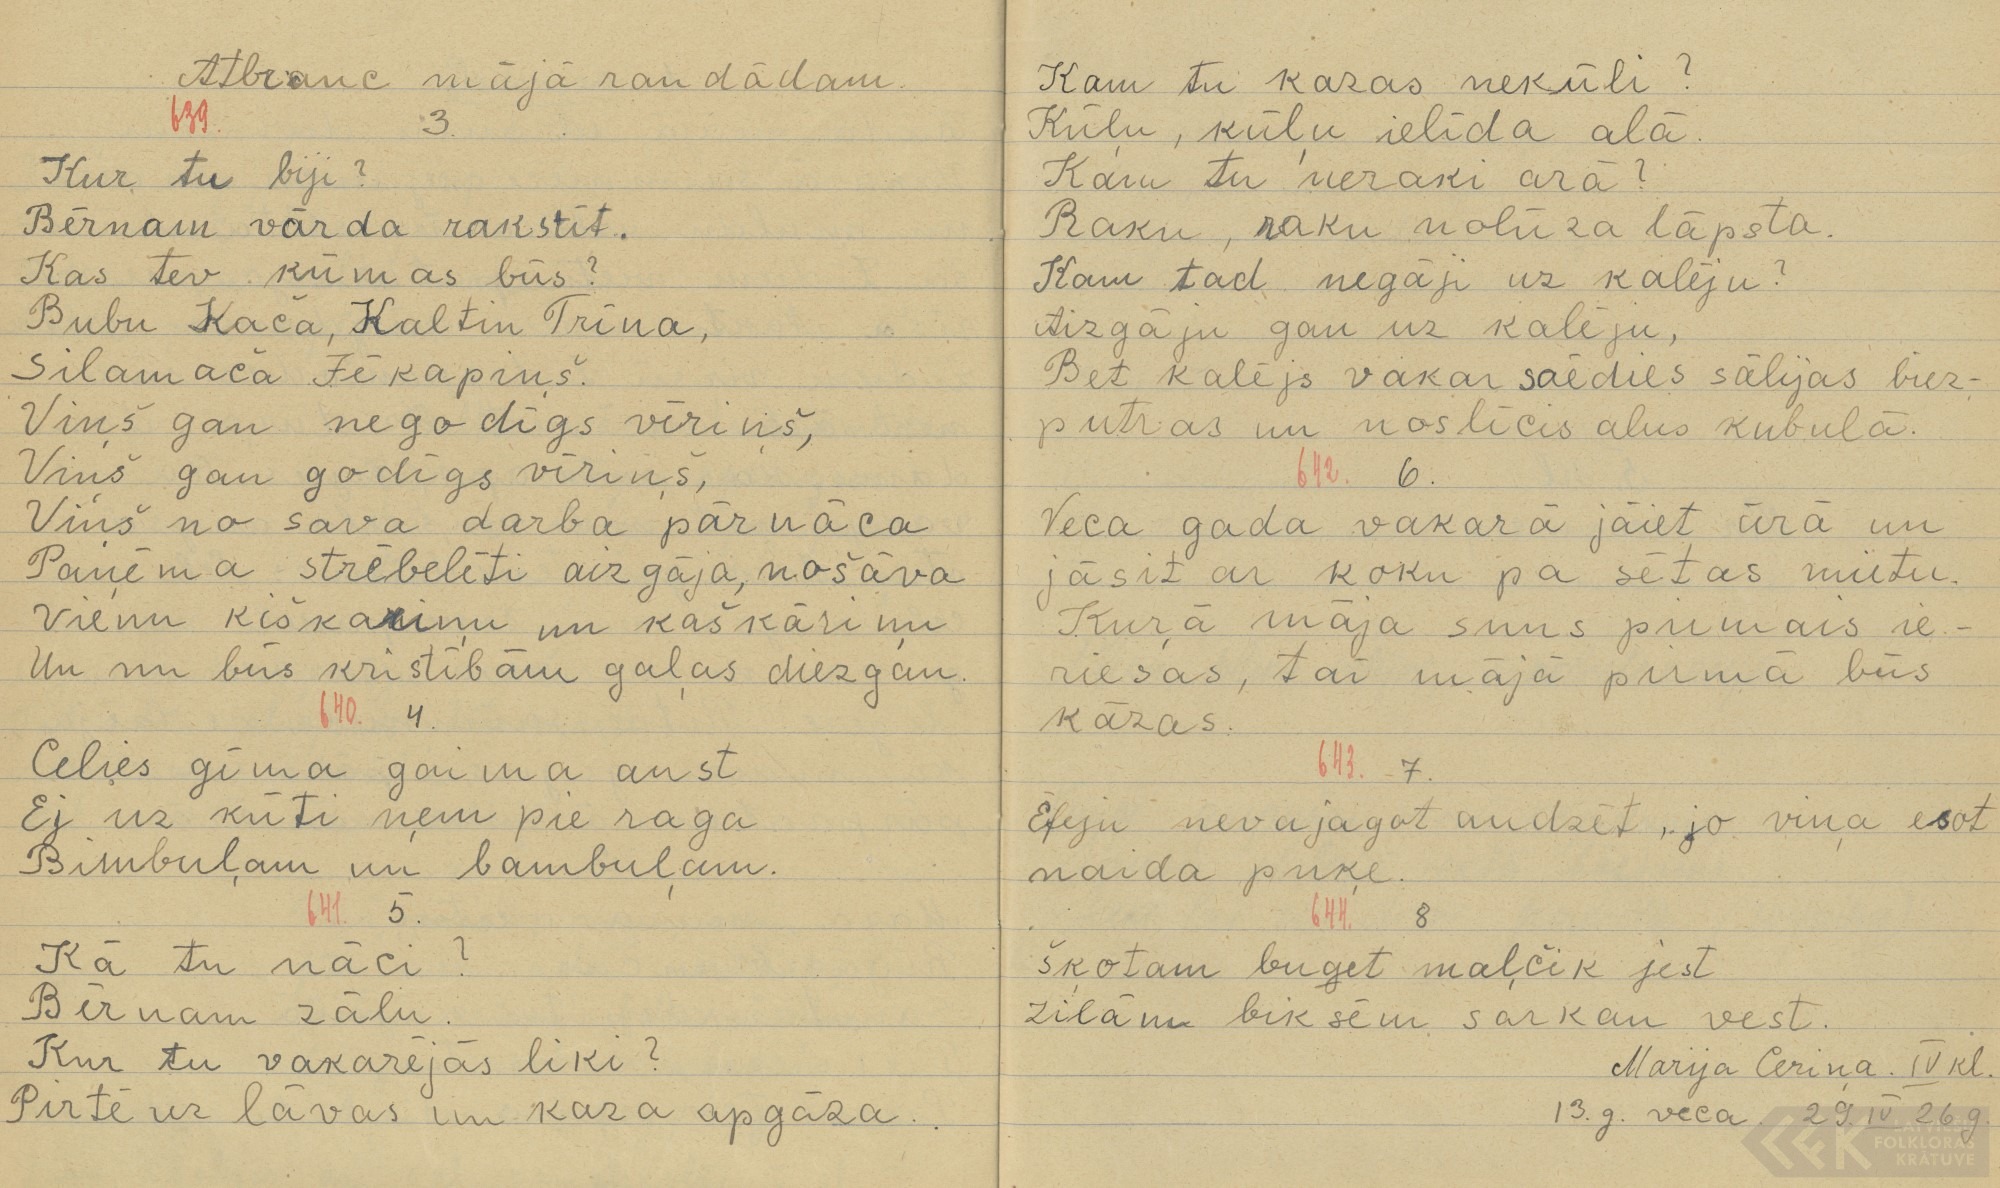 Atbrauc mājā randādam.
639. 3.
Kur tu biji?
Bērnam vārda rakstīt.
Kas tev kūmas būs?
Bubu Kača, Kaltin Trīna,
Silamača Jēkapiņš.
Viņš gan negodīgs vīriņš,
Viņš gan godīgs vīriņš,
Viņš no sava darba pārnāca
Paņēma strēbelēti aizgāja, nošāva
Vienu kiškariņu un kaškāriņu
Un nu būs kristībām gaļas diezgan.
640. 4.
Celies gīma gaima aust
Ej uz kūti ņem pie raga
Bimbuļam un bambuļam.
641. 5.
Kā tu nāci?
Bērnam zālu.
Kur tu vakarējās liki?
Pirtē uz lāvas un kaza apgāza.
Kam tu kazas nekūli?
Kūļu, kūļu ielīda alā.
Kam tu neraki arā?
Raku, raku nolūza lāpsta.
Kam tad negāji uz kalēju?
Aizgāju gan uz kalēju,
Bet kalējs vakar saēdies sālijas biez-
putras un noslīcis alus kubulā.
642. 6.
Veca gada vakarā jāiet ūrā un
jāsit ar koku pa sētas mietu.
Kurā māja suns pirmais ie-
riesas, tai mājā pirmā būs
kāzas.
643. 7.
Efeju nevajagot audzēt, jo viņa esot
naida puķe.
644. 8
šķotam buget maļčik jest
zilām biksēm sarkan vest.
Marija Ceriņa. IV kl.
13. g. veca 29. IV 26 g.
LATVIEŠU
FOLKLORAS
KRĀTUVE